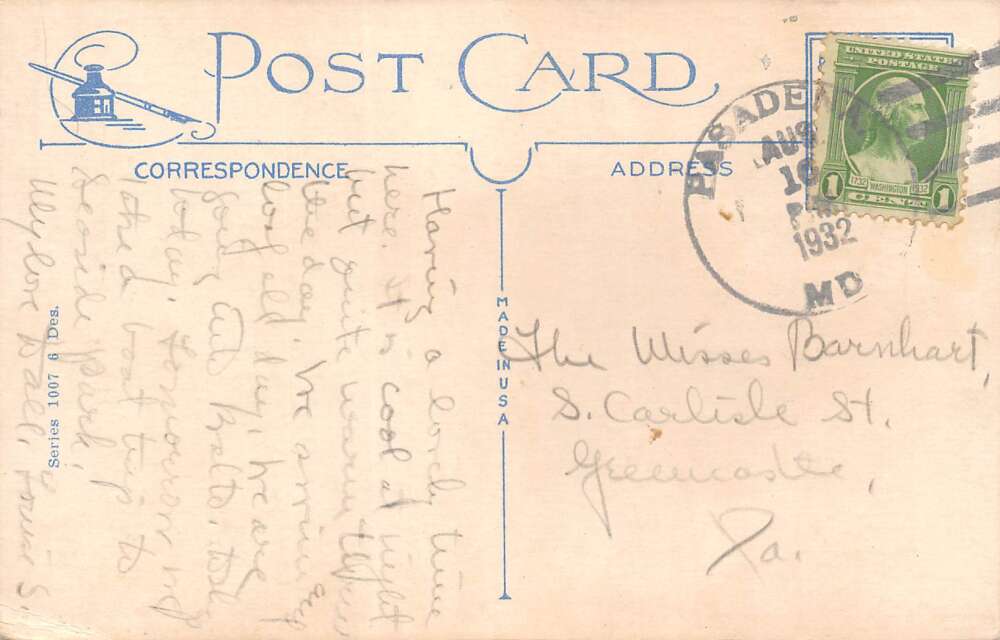 POST CARD
CORRESPONDENCE
ADDRESS
UNITED STATES
POSTAGE
1732 WASHINGTON 1932
1 CENT 1
PASADENA
AUG
10
P.M.
1932
MD
MADE IN U S A
Series 1007 6 Des.
The Misses Barnhart,
S. Carlisle St.
Greencastle,
Pa.
Having a lovely time
here. It is cool at night
but quite warm
the day. We
all day. We are
going to Balto.
today. Tomorrow
take a boat trip to
Seaside Park.
My love to all,